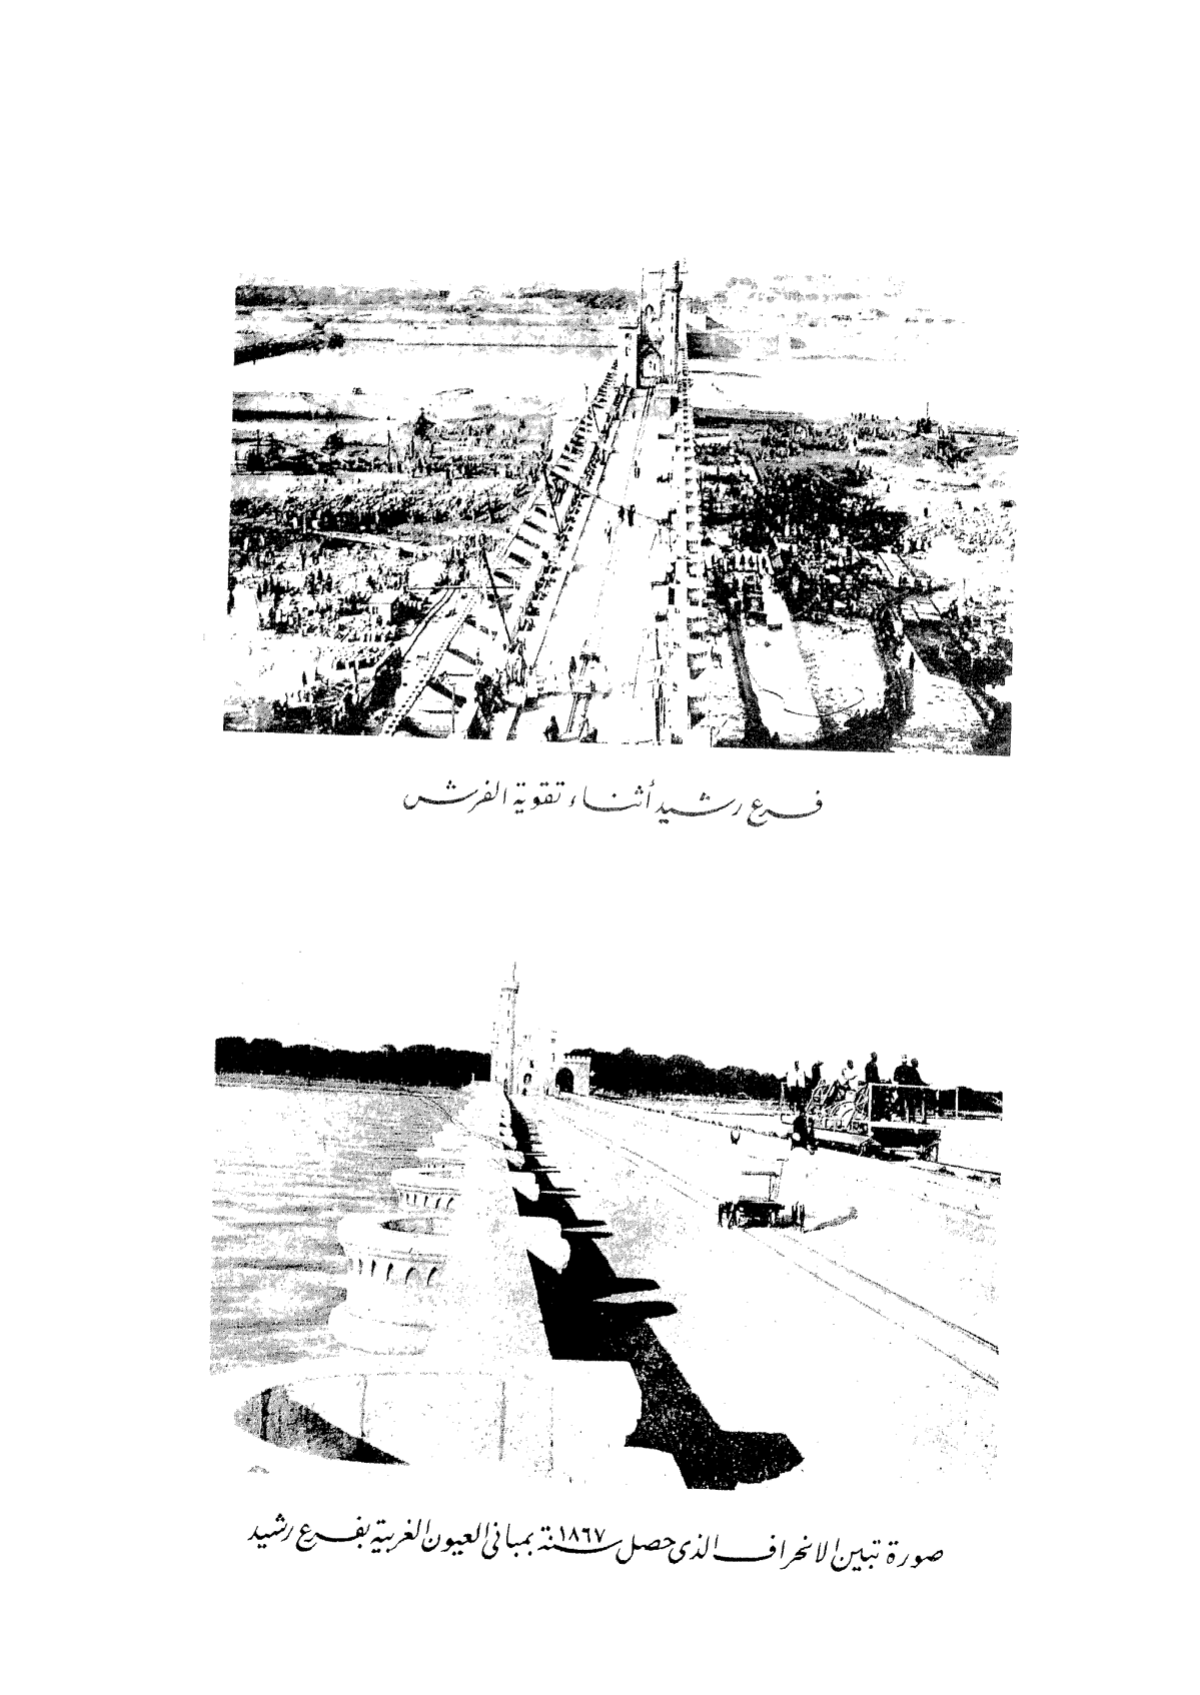 فرع رشيد أثناء تقوية الفرش
صورة تبين الانحراف الذى حصل سنة ١٨٦٧ بمبانى العيون الغربية بفرع رشيد